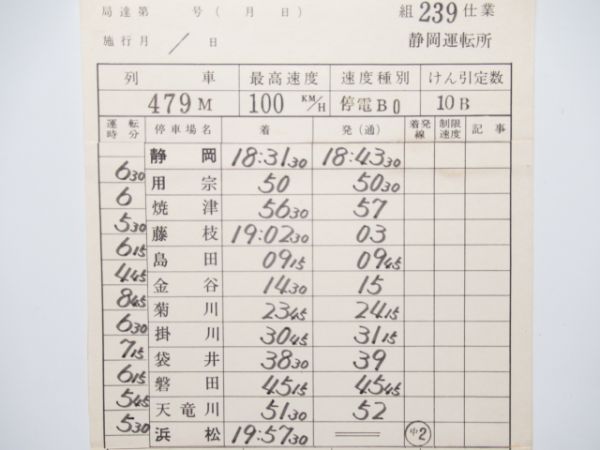 局達第 号(月 日) 組239仕業
施行月 / 日 静岡運転所
列 車 最高速度 速度種別 けん引定数
479M 100 KM/H 停電B0 10B
運転時分 停車場名 着 発(通) 着発線 制限速度 記事
静岡 18:31 30 18:43 30
6 30
用宗 50 50 30
6
焼津 56 30 57
5 30
藤枝 19:02 30 03
6 15
島田 09 15 09 45
4 45
金谷 14 30 15
8 45
菊川 23 45 24 15
6 30
掛川 30 45 31 15
7 15
袋井 38 30 39
6 15
磐田 45 15 45 45
5 45
天竜川 51 30 52
5 30
浜松 19:57 30 中2